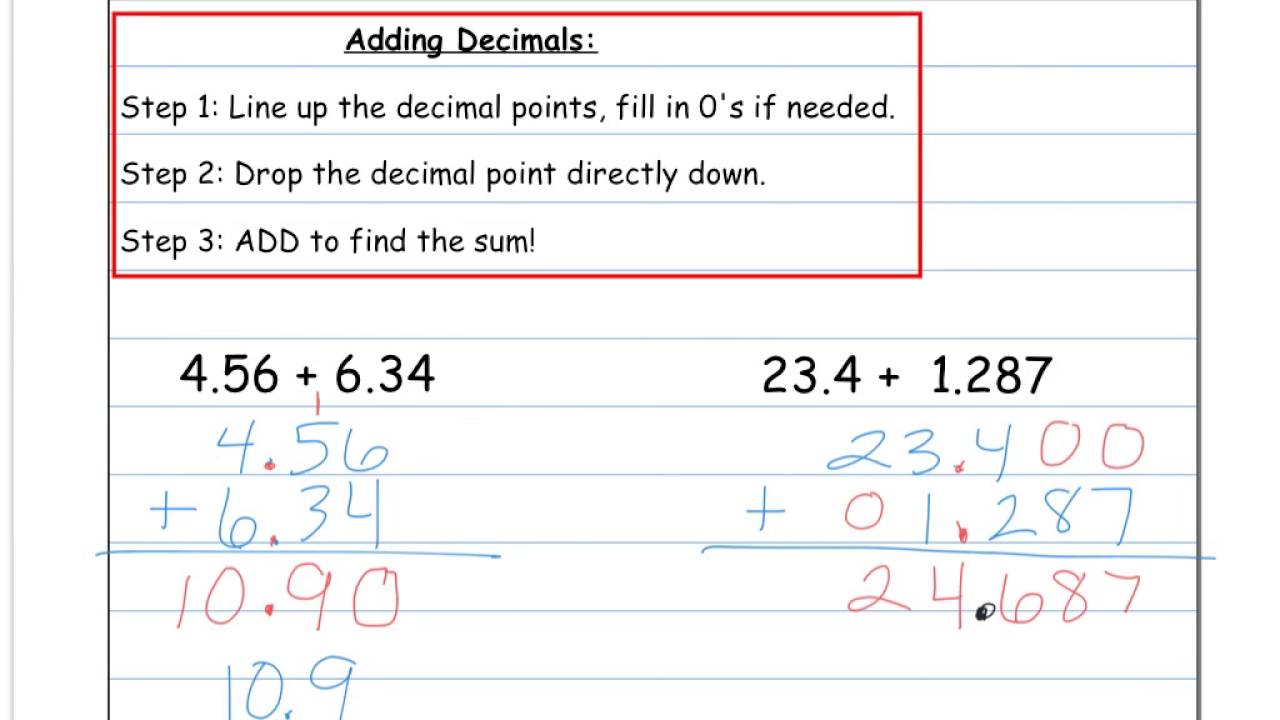 Adding Decimals:
Step 1: Line up the decimal points, fill in 0's if needed.
Step 2: Drop the decimal point directly down.
Step 3: ADD to find the sum!
4.56 + 6.34
1
4.56
+ 6.34
10.90
10.9
23.4 + 1.287
23.400
+ 01.287
24.687